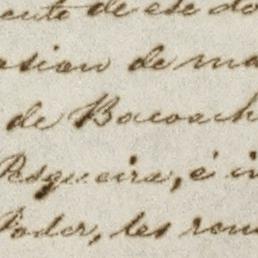 ente de ese do
asion de ma
de Bacoach
Pesqueira, é i
Poder, les rem